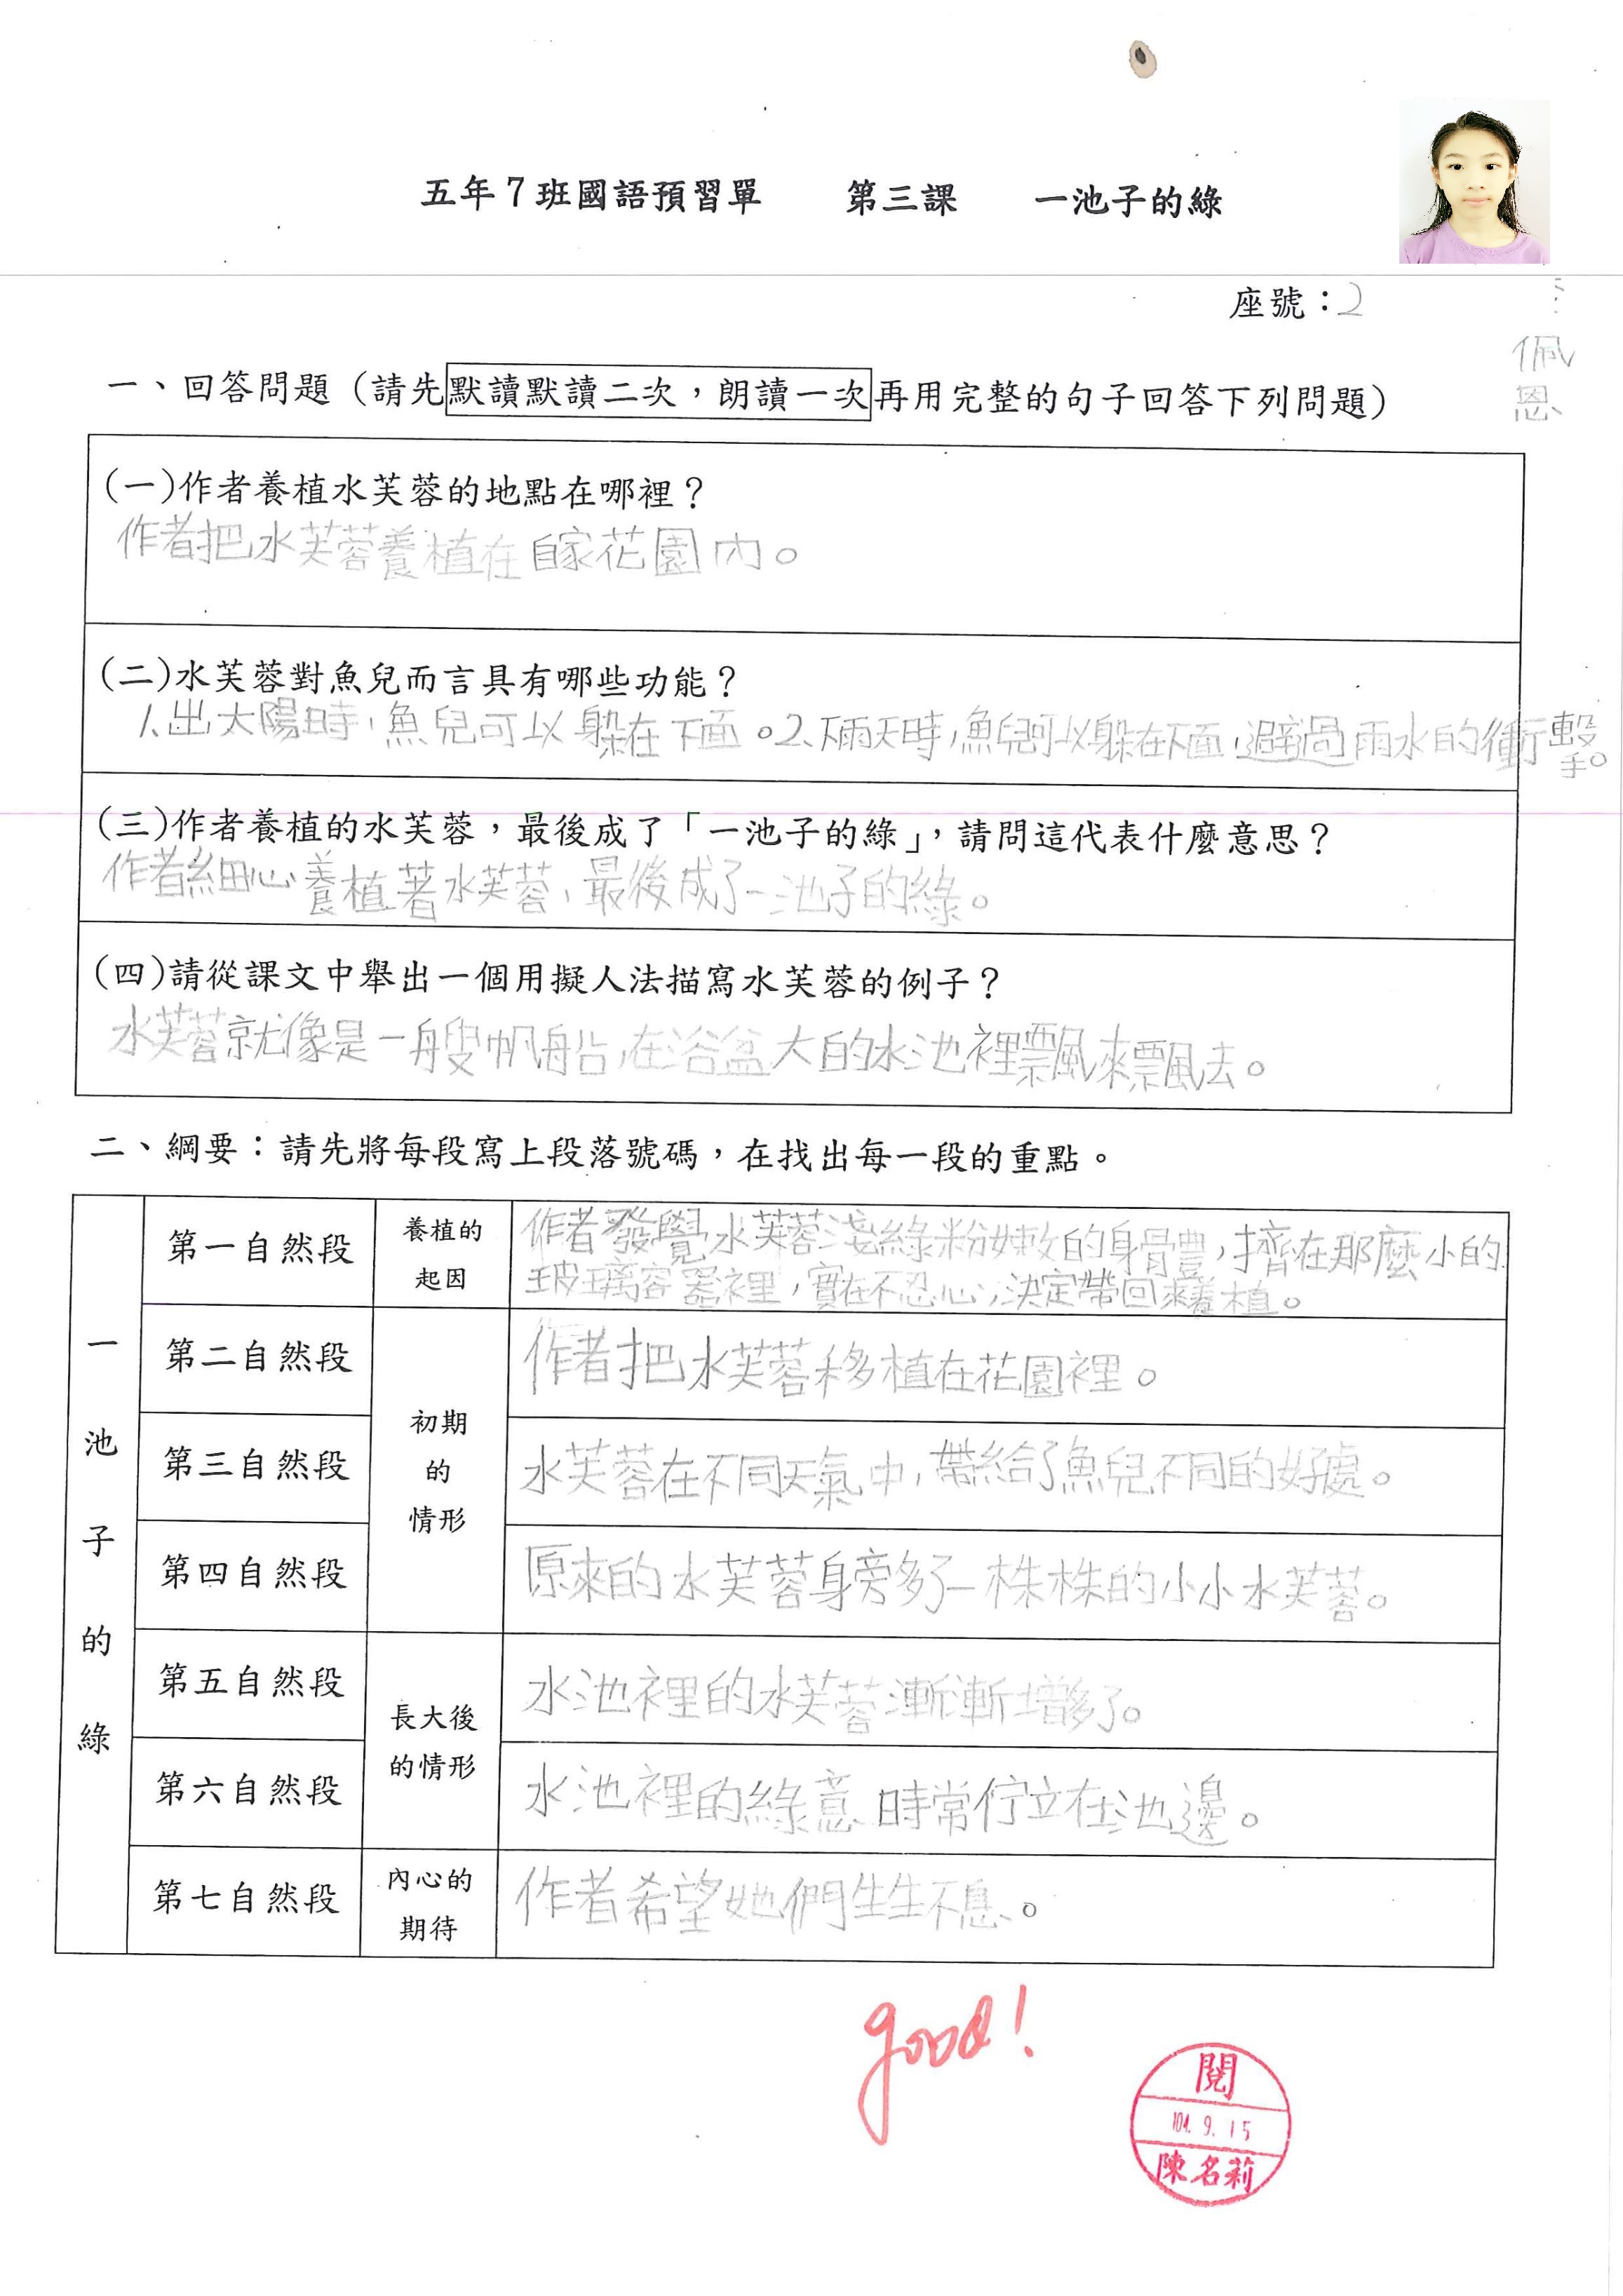 五年7班國語預習單 第三課 一池子的綠
座號：2
佩恩
一、回答問題（請先默讀默讀二次，朗讀一次再用完整的句子回答下列問題）
(一)作者養植水芙蓉的地點在哪裡？
作者把水芙蓉養植在自家花園內。
(二)水芙蓉對魚兒而言具有哪些功能？
1、出太陽時，魚兒可以躲在下面。2、下雨天時，魚兒可以躲在下面，避過雨水的衝擊。
(三)作者養植的水芙蓉，最後成了「一池子的綠」，請問這代表什麼意思？
作者細心養植著水芙蓉，最後成了一池子的綠。
(四)請從課文中舉出一個用擬人法描寫水芙蓉的例子？
水芙蓉就像是一艘帆船，在浴盆大的水池裡飄來飄去。
二、綱要：請先將每段寫上段落號碼，在找出每一段的重點。
一池子的綠
第一自然段
養植的
起因
作者發覺水芙蓉淺綠粉嫩的身體，擠在那麼小的
玻璃容器裡，實在不忍心，決定帶回來養植。
第二自然段
初期
的
情形
作者把水芙蓉移植在花園裡。
第三自然段
水芙蓉在不同天氣中，帶給了魚兒不同的好處。
第四自然段
原來的水芙蓉身旁多了一株株的小小水芙蓉。
第五自然段
長大後
的情形
水池裡的水芙蓉漸漸增多了。
第六自然段
水池裡的綠意 時常佇立在池邊。
第七自然段
內心的
期待
作者希望她們生生不息。
good!
閱
104. 9. 15
陳名莉